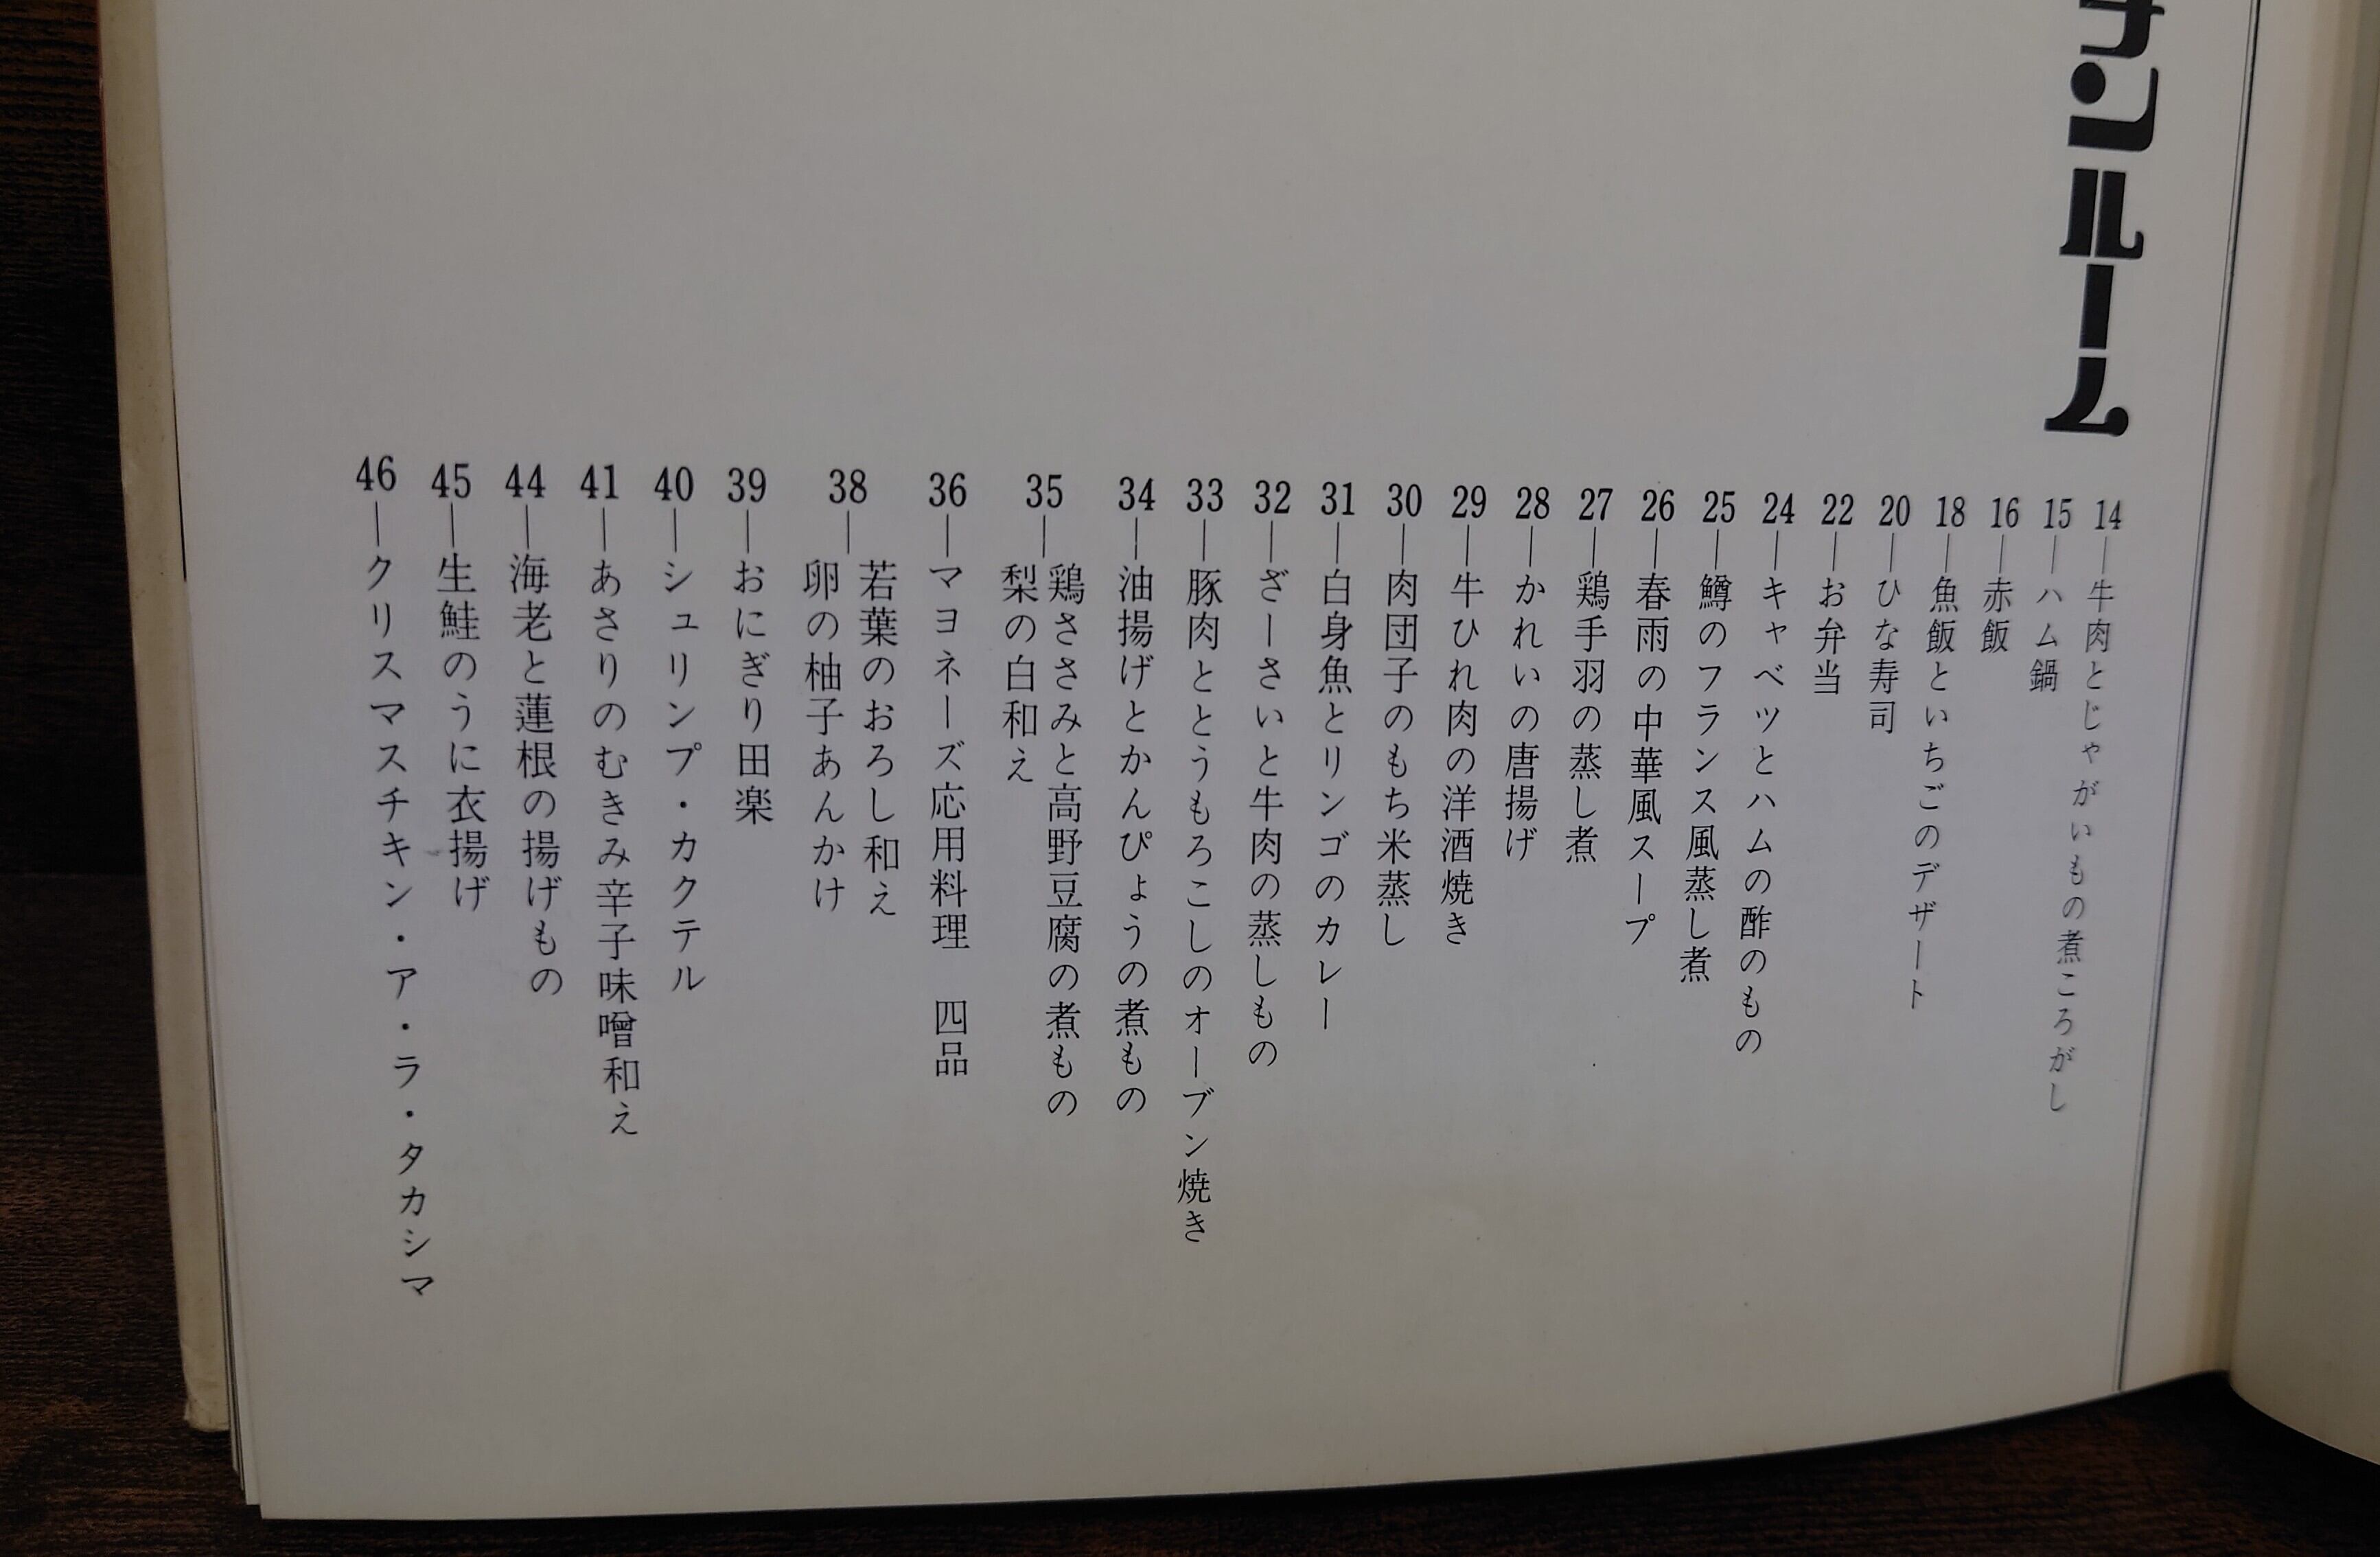 チンルーム
14―牛肉とじゃがいもの煮ころがし
15―ハム鍋
16―赤飯
18―魚飯といちごのデザート
20―ひな寿司
22―お弁当
24―キャベツとハムの酢のもの
25―鱒のフランス風蒸し煮
26―春雨の中華風スープ
27―鶏手羽の蒸し煮
28―かれいの唐揚げ
29―牛ひれ肉の洋酒焼き
30―肉団子のもち米蒸し
31―白身魚とリンゴのカレー
32―ざーさいと牛肉の蒸しもの
33―豚肉ととうもろこしのオーブン焼き
34―油揚げとかんぴょうの煮もの
35―鶏ささみと高野豆腐の煮もの
梨の白和え
36―マヨネーズ応用料理　四品
38―若葉のおろし和え
卵の柚子あんかけ
39―おにぎり田楽
40―シュリンプ・カクテル
41―あさりのむきみ辛子味噌和え
44―海老と蓮根の揚げもの
45―生鮭のうに衣揚げ
46―クリスマスチキン・ア・ラ・タカシマ